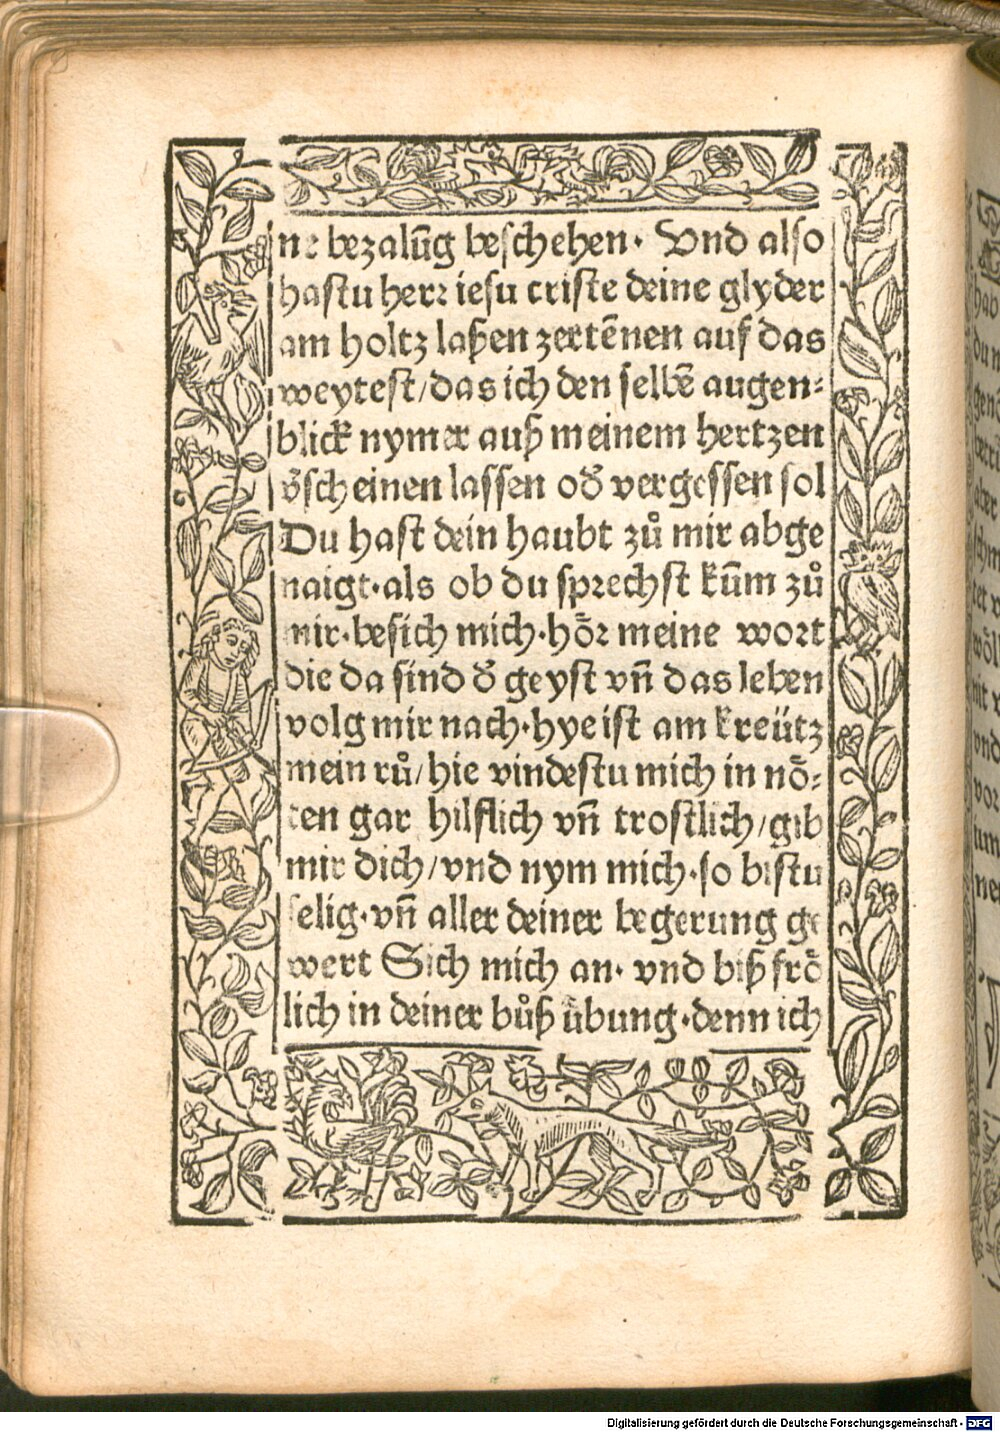 ne bezalūg beschehen. Vnd also
hastu herꝛ iesu criste deine glyder
am holtz laßen zertēnen auf das
weytest/das ich den selbē augen⸗
blick nymer auß meinem hertzen
v̄scheinen lassen od̄ vergessen sol
Du hast dein haubt zů mir abge
naigt·als ob du sprechst kūm zů
mir·besich mich·hör meine wort
die da sind d̄ geyst vn̄ das leben
volg mir nach·hye ist am kreütz
mein rů/hie vindestu mich in nö⸗
ten gar hilflich vn̄ trostlich/gib
mir dich/vnd nym mich·so bistu
selig·vn̄ aller deiner begerung ge
wert Sich mich an· vnd biß frö
lich in deiner bůß übung·denn ich
Digitalisierung gefördert durch die Deutsche Forschungsgemeinschaft - DFG